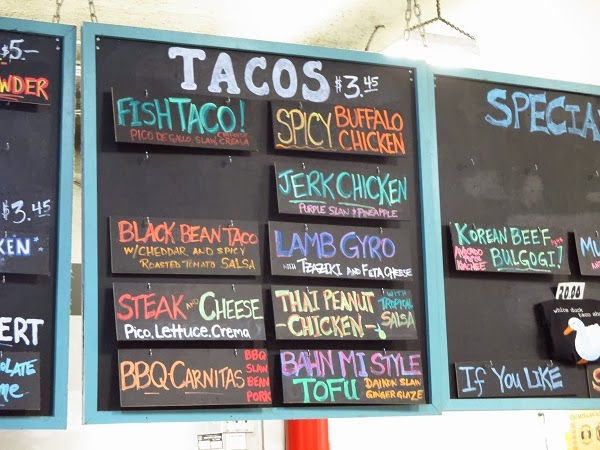 $5-
WDER
$3.45
KEN
ERT
LATE
me
TACOS $3.45
FISH TACO!
PICO DE GALLO, SLAW, CREMA
SPICY BUFFALO
CHICKEN
JERK CHICKEN
PURPLE SLAW & PINEAPPLE
BLACK BEAN TACO
W/CHEDDAR AND SPICY
ROASTED TOMATO SALSA
LAMB GYRO
WITH TZAZIKI AND FETA CHEESE
STEAK AND CHEESE
PICO, LETTUCE, CREMA
THAI PEANUT
CHICKEN
WITH
TROPICAL
SALSA
BBQ-CARNITAS
BBQ
SLAW
BEAN
PORK
BAHN MI STYLE
TOFU
DAIKON SLAW
GINGER GLAZE
SPECIA
KOREAN BEEF
BULGOGI!
MU
white duck
taco sho
IF YOU LIKE
S